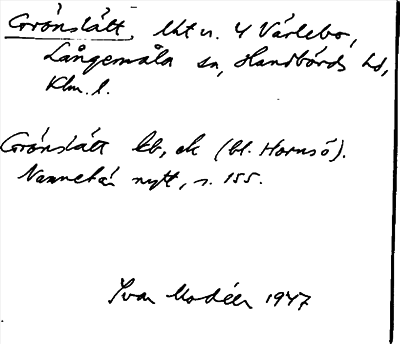 Grönslätt, lht u. 4 Värlebo,
Långemåla sn, Handbörds hd,
Klm. l.
Grönslätt kb, ek (bl. Hornsö).
Namnet är nytt, s. 155.
Ivar Modéer 1947